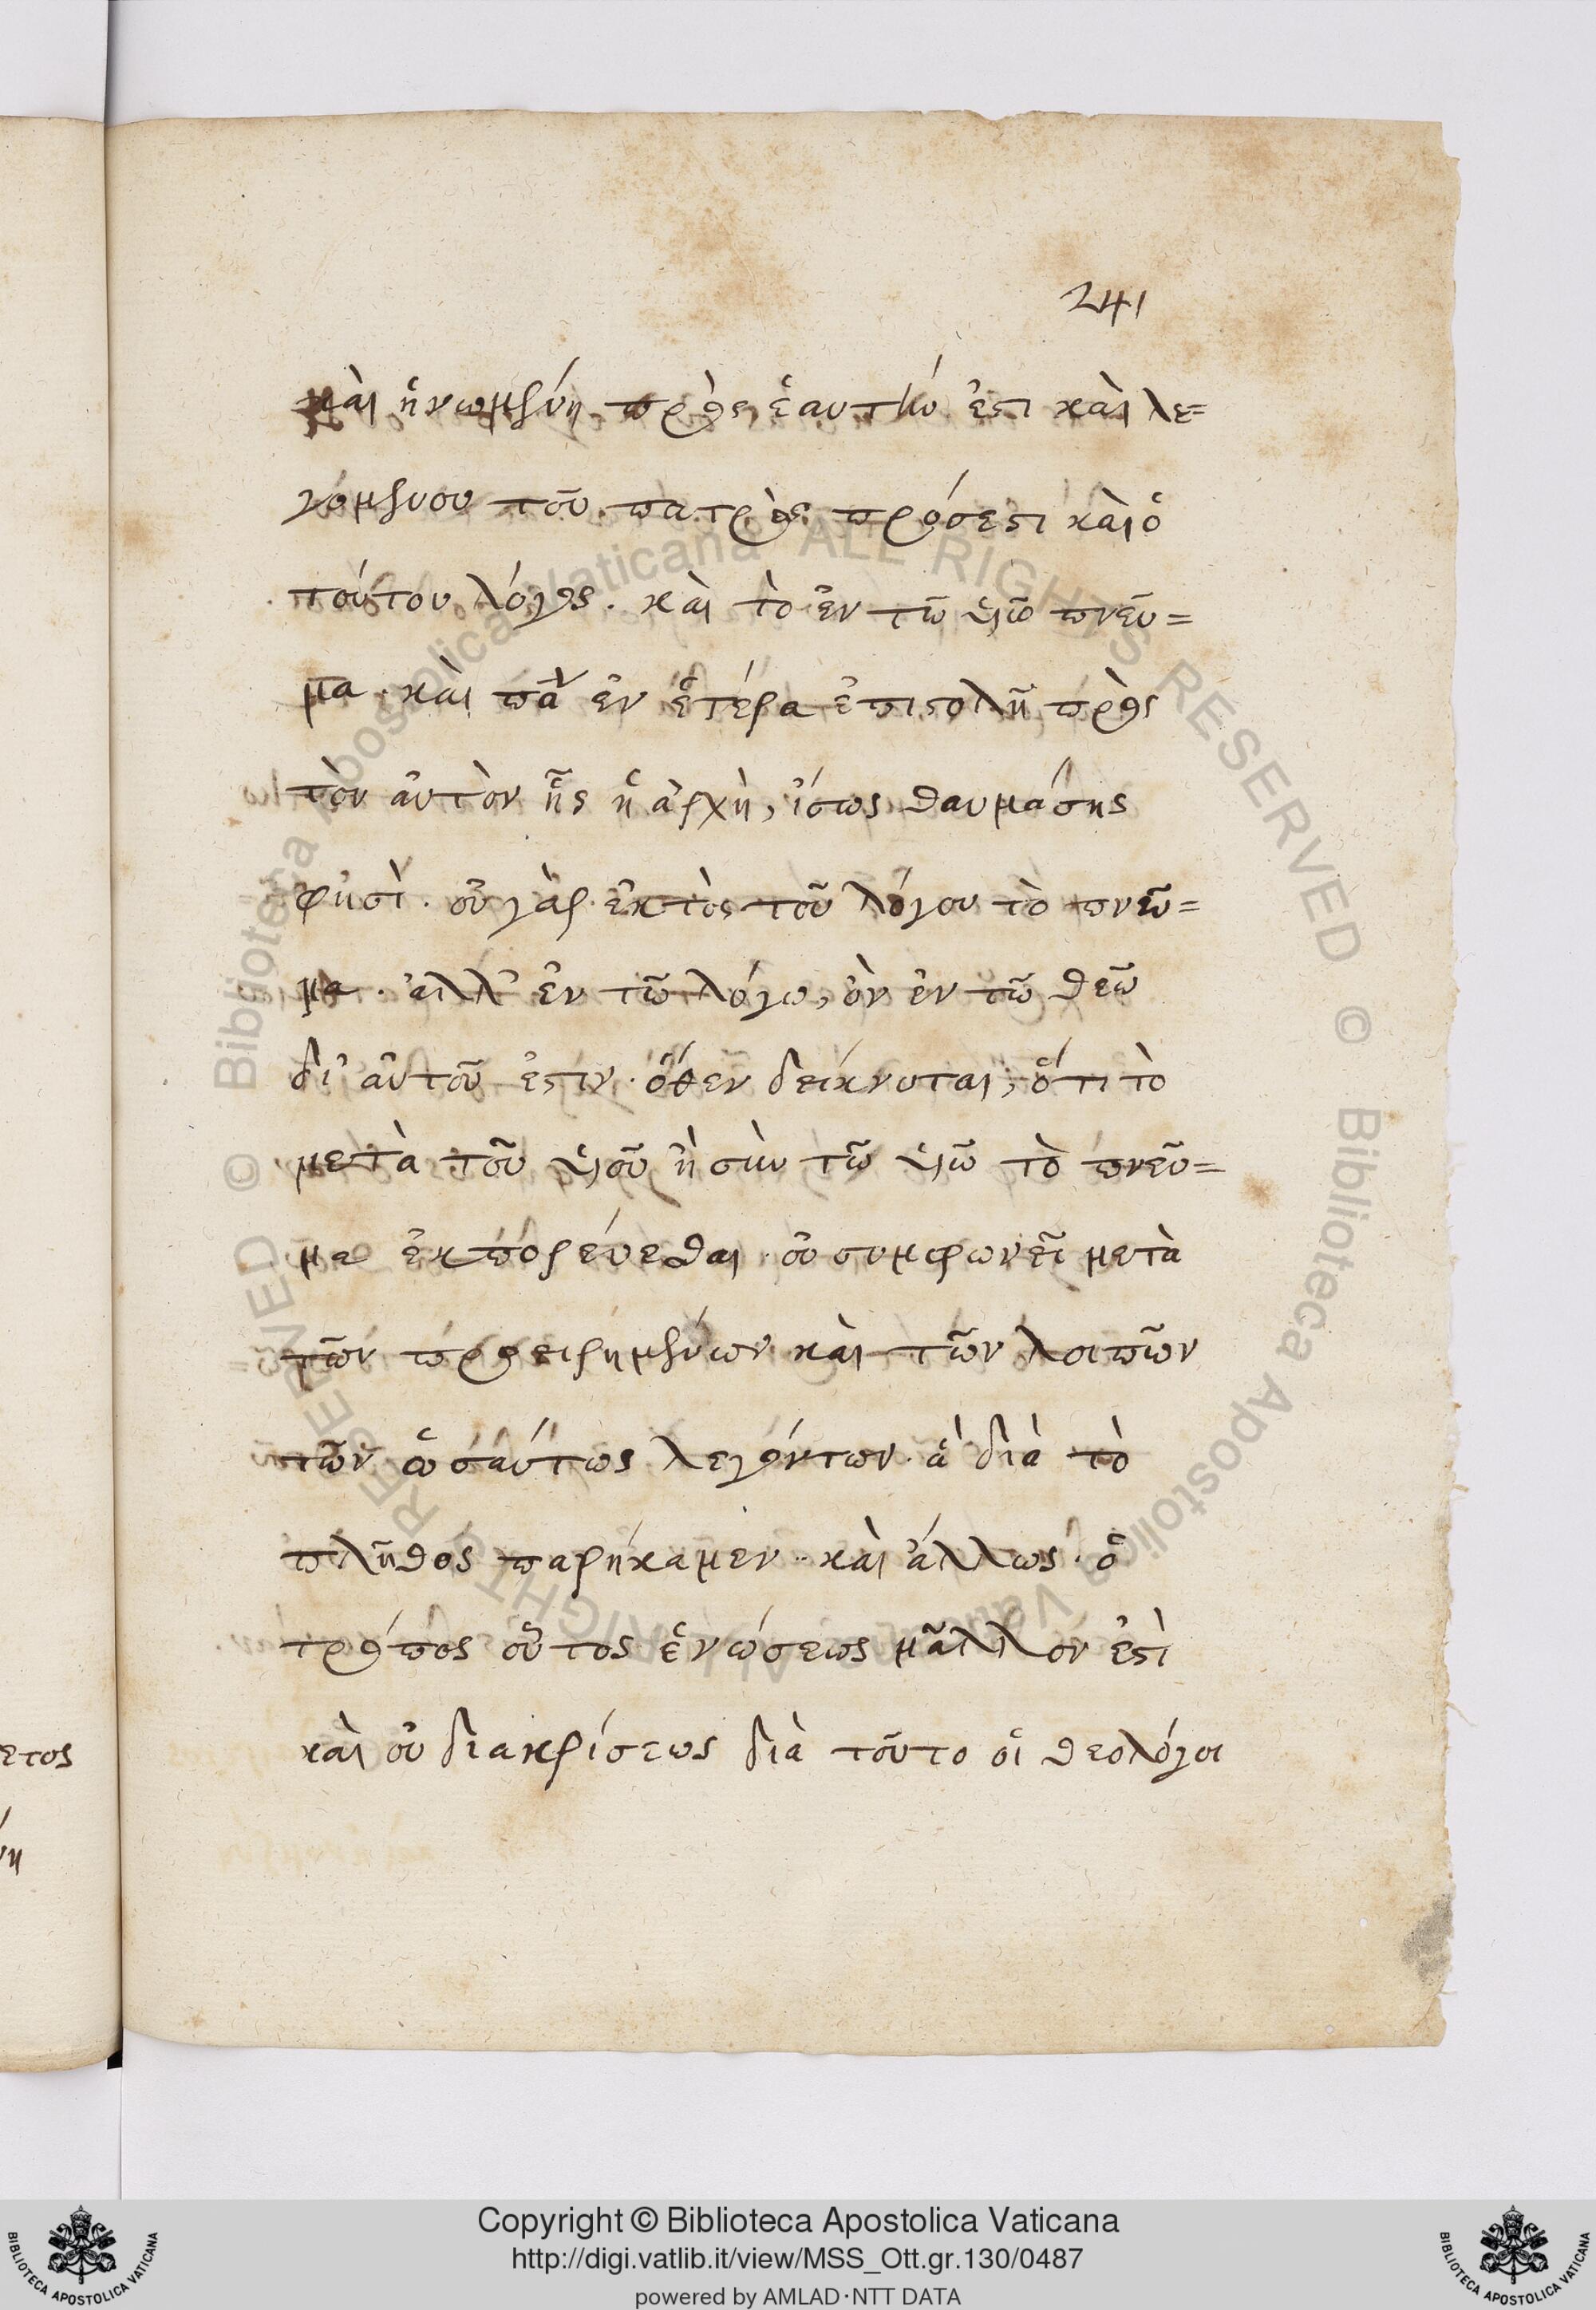 241
καὶ ἡνωμένη πρὸς ἑαυτήν ἐστι καὶ λε=
γομένου τοῦ πατρὸς πρόσεστι καὶ ὁ
τούτου λόγος. καὶ τὸ ἐν τῶ υἱῶ πνεῦ=
μα. καὶ πᾶ ἐν ἑτέρα ἐπιστολῆ πρὸς
τὸν αὐτὸν ἧς ἡ ἀρχὴ, ἴσως θαυμάσης
φησὶ. οὐ γὰρ ἐκτὸς τοῦ λόγου τὸ πνεῦ=
μα. ἀλλ' ἐν τῶ λόγω, ὂν ἐν τῶ θεῶ
δι' αὐτοῦ ἐστιν. ὅθεν δείκνυται, ὅτι τὸ
μετὰ τοῦ υἱοῦ ἢ σὺν τῶ υἱῶ τὸ πνεῦ=
μα ἐκπορεύεσθαι. οὐ συμφωνεῖ μετὰ
τῶν προειρημένων καὶ τῶν λοιπῶν
τῶν ὡσαύτως λεγόντων. ἃ διὰ τὸ
πλῆθος παρήκαμεν. καὶ ἄλλως. ὁ
τρόπος οὗτος ἑνώσεως μᾶλλον ἐστὶ
καὶ οὐ διακρίσεως διὰ τοῦτο οἱ θεολόγοι
ετος
νη
Copyright © Biblioteca Apostolica Vaticana
http://digi.vatlib.it/view/MSS_Ott.gr.130/0487
powered by AMLAD·NTT DATA
BIBLIOTECA APOSTOLICA VATICANA
BIBLIOTECA APOSTOLICA VATICANA
© Biblioteca Apostolica Vaticana ALL RIGHTS RESERVED © Biblioteca Apostolica Vaticana ALL RIGHTS RESERVED